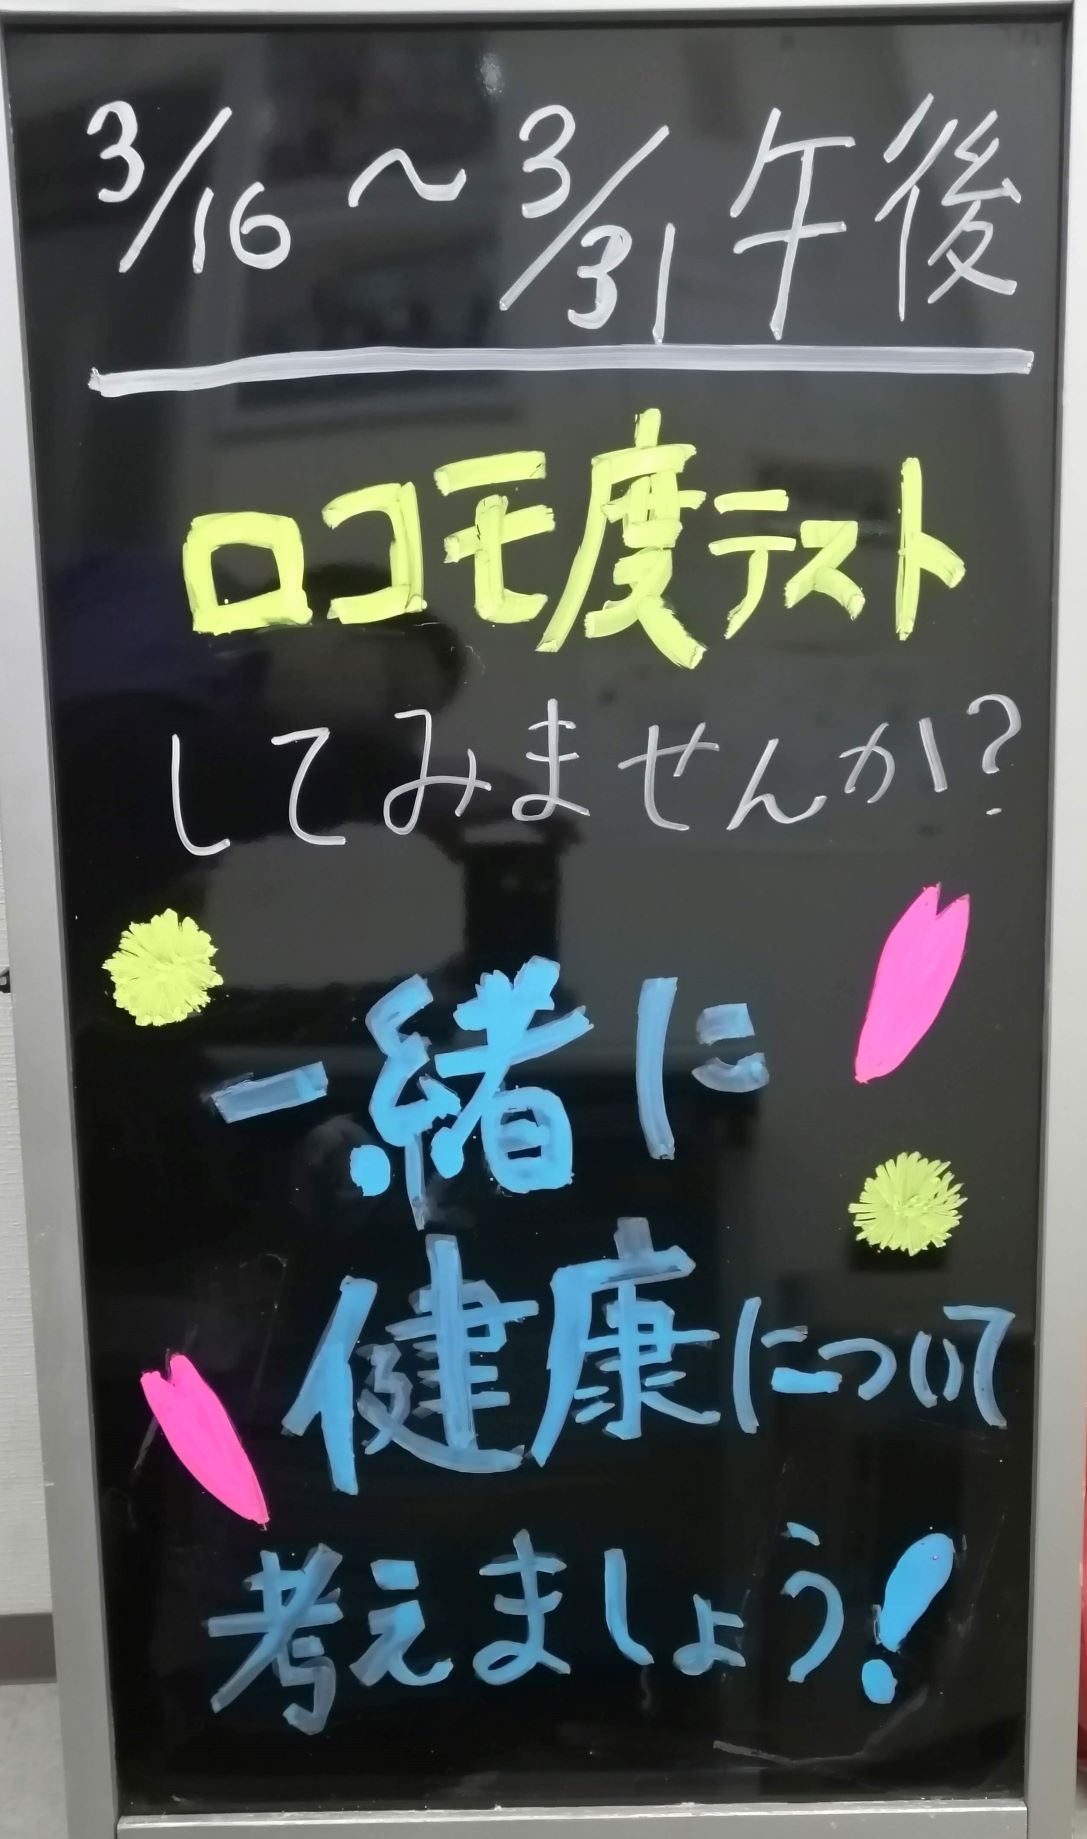 3/16～3/31 午後
ロコモ度テスト
してみませんか?
一緒に
健康について
考えましょう!